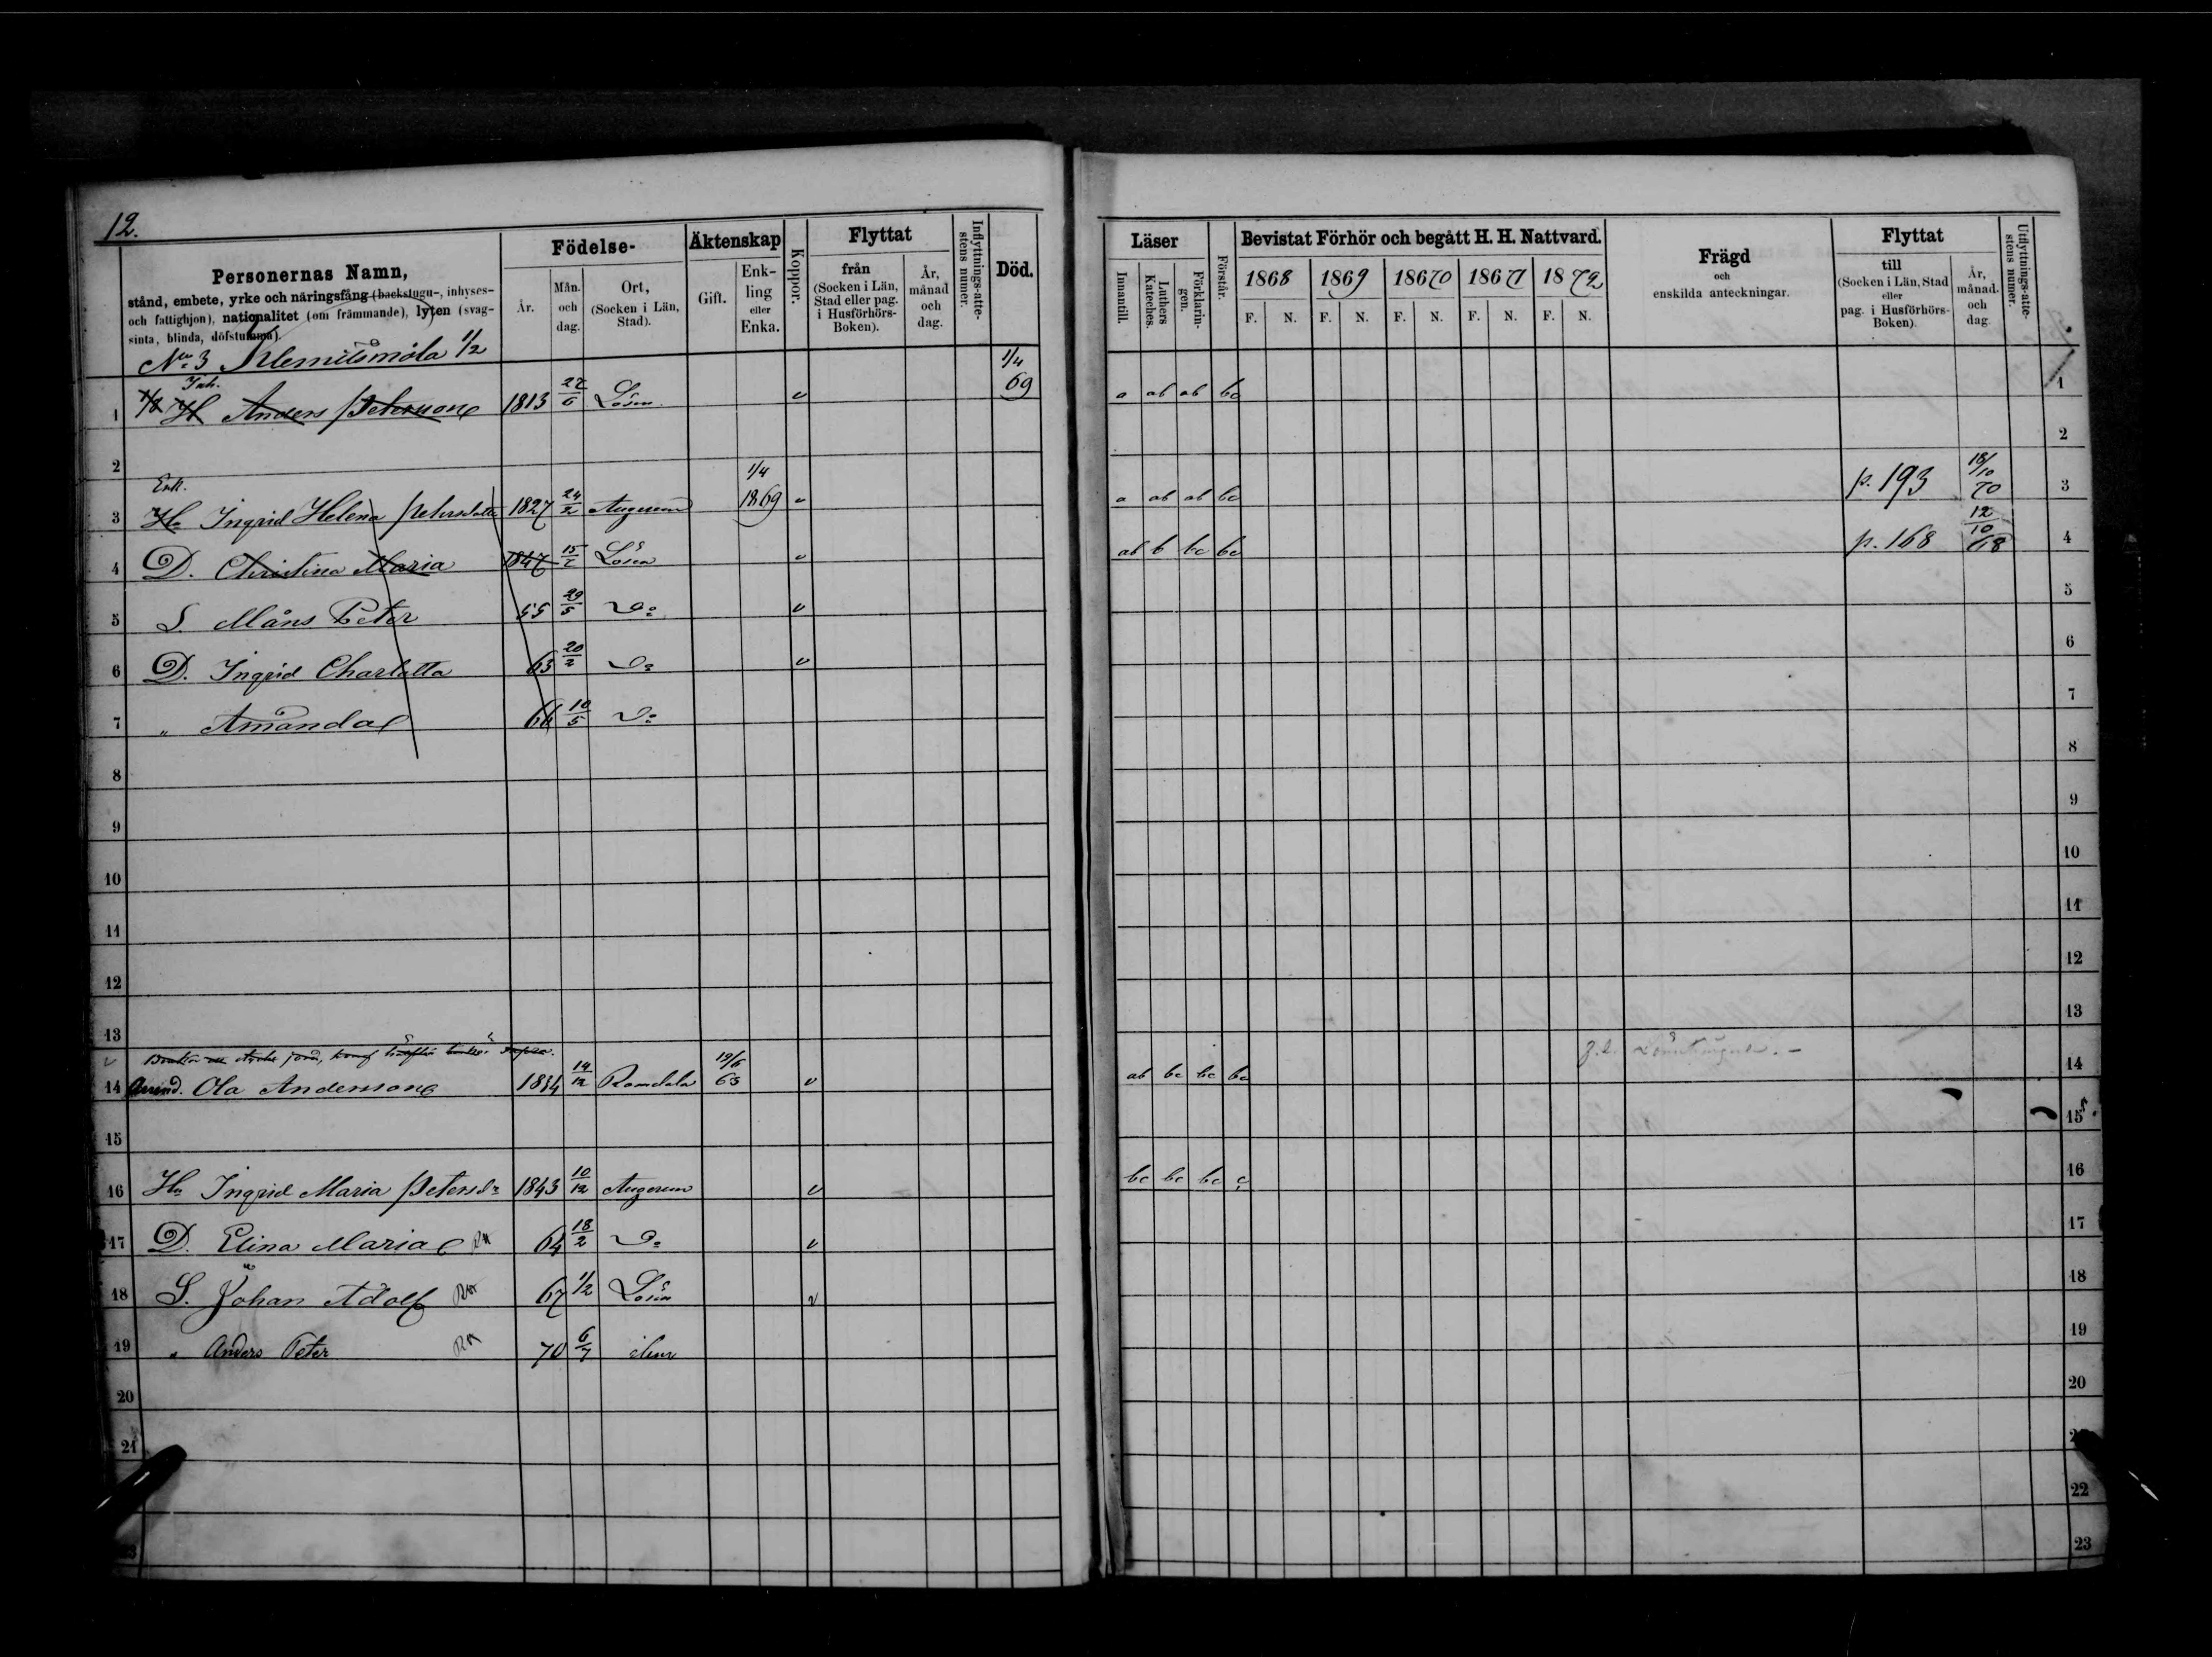 12.
Personernas Namn,
stånd, embete, yrke och näringsfång (backstugu-, inhyses-
och fattighjon), nationalitet (om främmande), lyten (svag-
sinta, blinda, döfstumma).
Födelse-
År.
Mån. och dag.
Ort,
(Socken i Län, Stad).
Äktenskap
Gift.
Enk-
ling
eller
Enka.
Koppor.
Flyttat
från
(Socken i Län,
Stad eller pag.
i Husförhörs-
Boken).
År,
månad
och
dag.
Inflyttnings-atte-
stens numer.
Död.
Läser
Innantill.
Luthers
Kateches.
Förklarin-
gen.
Förstår.
Bevistat Förhör och begått H. H. Nattvard.
1868 1869 18670 18671 1872
F. N. F. N. F. N. F. N. F. N.
Frägd
och
enskilda anteckningar.
Flyttat
till
(Socken i Län, Stad
eller
pag. i Husförhörs-
Boken)
År,
månad
och
dag
Utflyttnings-atte-
stens numer.
No 3 1/2
Inh. 1/4
1 Anders Petersson 1813 27/6 Lösen v 69 a ab ab bc 1
2 2
Enk. 1/4 18/10
3 Hu Ingrid Helena Petersdotter 1827 24/2 Augerum 1869 v a ab ab bc p. 193 70 3
4 D. Christina Maria 1847 15/7 Lösen v ab b bc bc p. 168 12/10 68 4
5 S. Måns Peter 55 29/5 Do v 5
6 D. Ingrid Charlotta 63 20/2 Do v 6
7 " Amanda 66 10/5 Do 7
8 8
9 9
10 10
11 11
12 12
13 13
19/6
14 Ola Andersson 1834 14/12 Ramdala 63 v ab bc bc bc 14
15 15
16 Hu Ingrid Maria Petersdr 1843 10/12 Augerum v bc bc bc c 16
17 D. Elina Maria 64 18/2 Do v 17
18 S. Johan Adolf 67 1/2 Lösen v 18
19 " Anders Peter 70 6/7 19
20 20
21
22
23